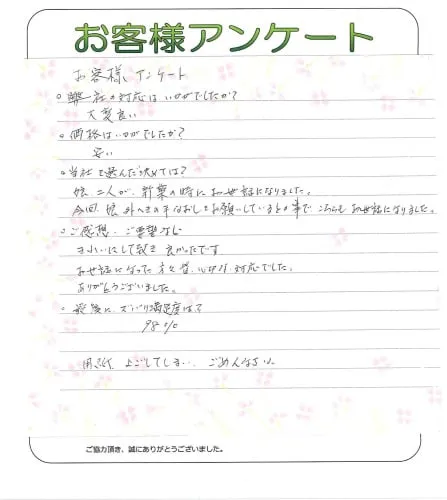 お客様アンケート
お客様 アンケート
○弊社の対応はいかがでしたか?
大変良い
○価格はいかがでしたか?
安い
○当社を選んだ決めては?
娘二人が、卒業の時にお世話になりました。
今回、娘 をお願いしているとの事で こちらも お世話になりました。
○ご感想・ご要望など
きれいにして頂き 良かったです
お世話になった 方々 皆、 対応でした。
ありがとうございました。
○最後に、ズバリ満足度は?
98%
用紙、よごしてしまい、ごめんなさい
ご協力頂き、誠にありがとうございました。